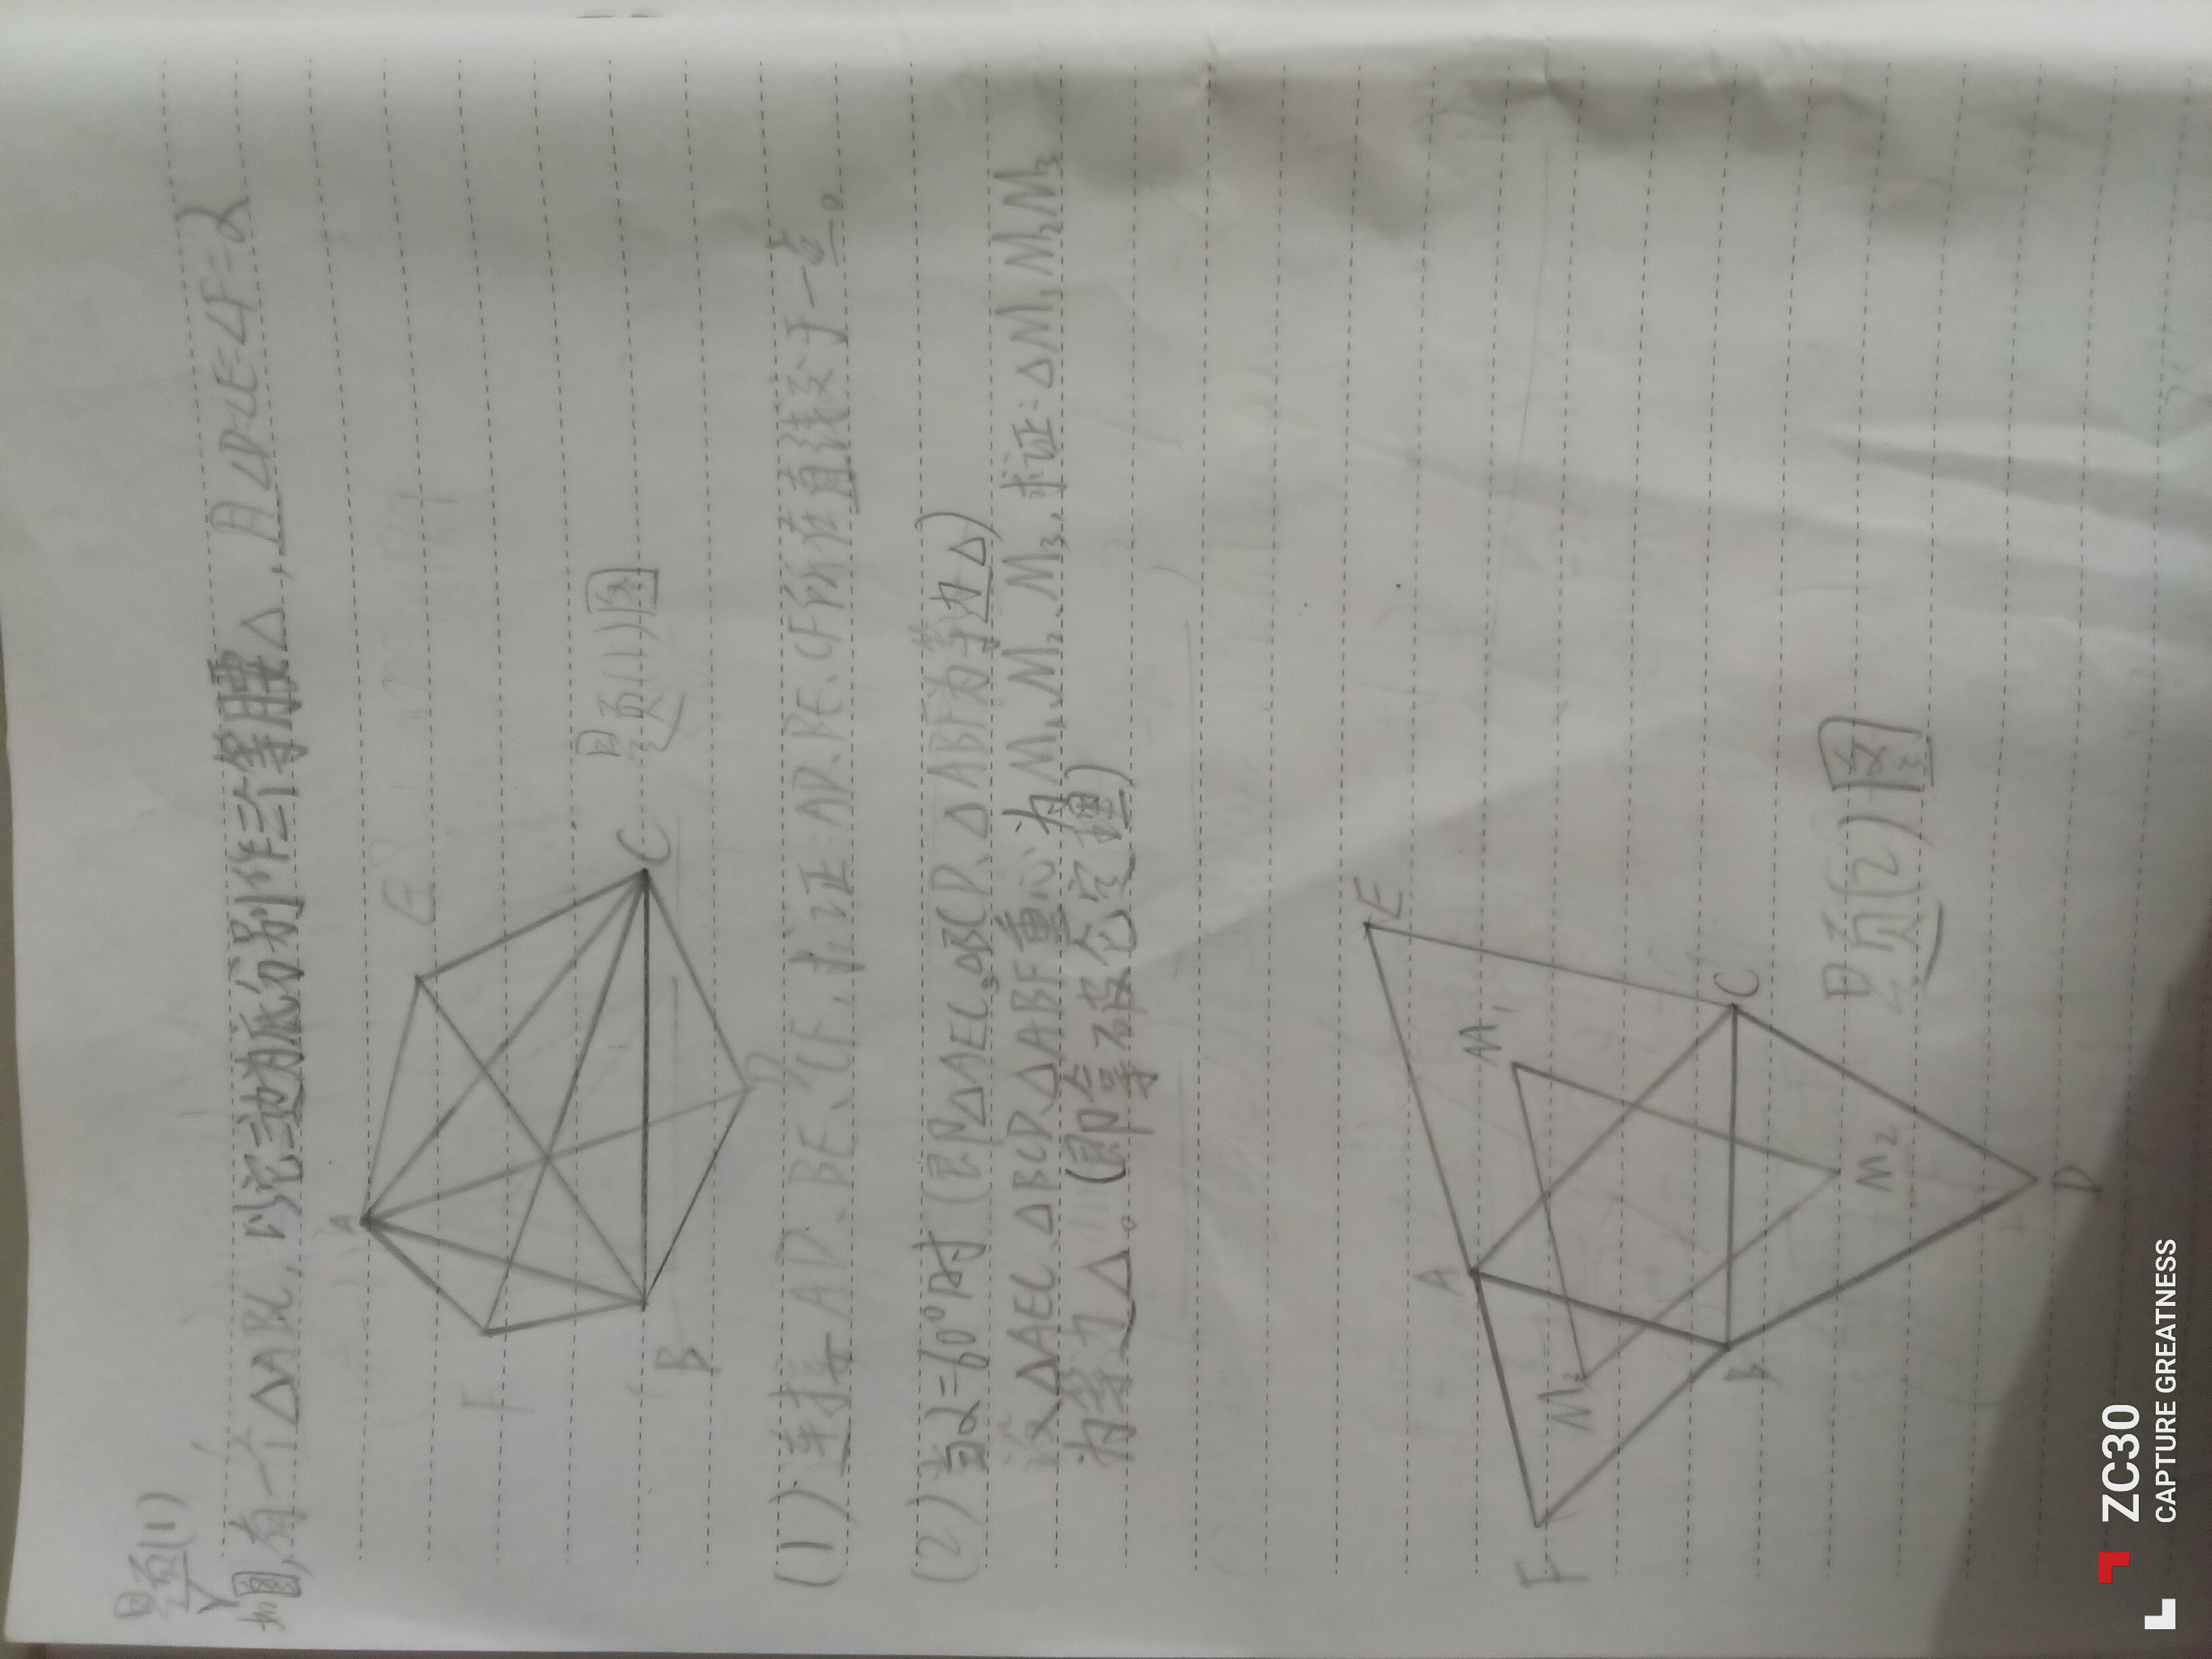 题(1)
如图,有一个△ABC,以它三边为底分别作三个等腰△,且∠D=∠E=∠F=α
A
E
F
B
C
D
题(1)图
(1)连接AD、BE、CF,求证:AD、BE、CF所在直线交于一点。
(2)当α=60°时(即△AEC、△BCD、△ABF为等边△)
设△AEC、△BCD、△ABF重心为M₁、M₂、M₃,求证:△M₁M₂M₃
为等边△。(即拿破仑定理)
E
A
M₁
M₃
F
B
C
M₂
D
题(2)图
ZC30
CAPTURE GREATNESS